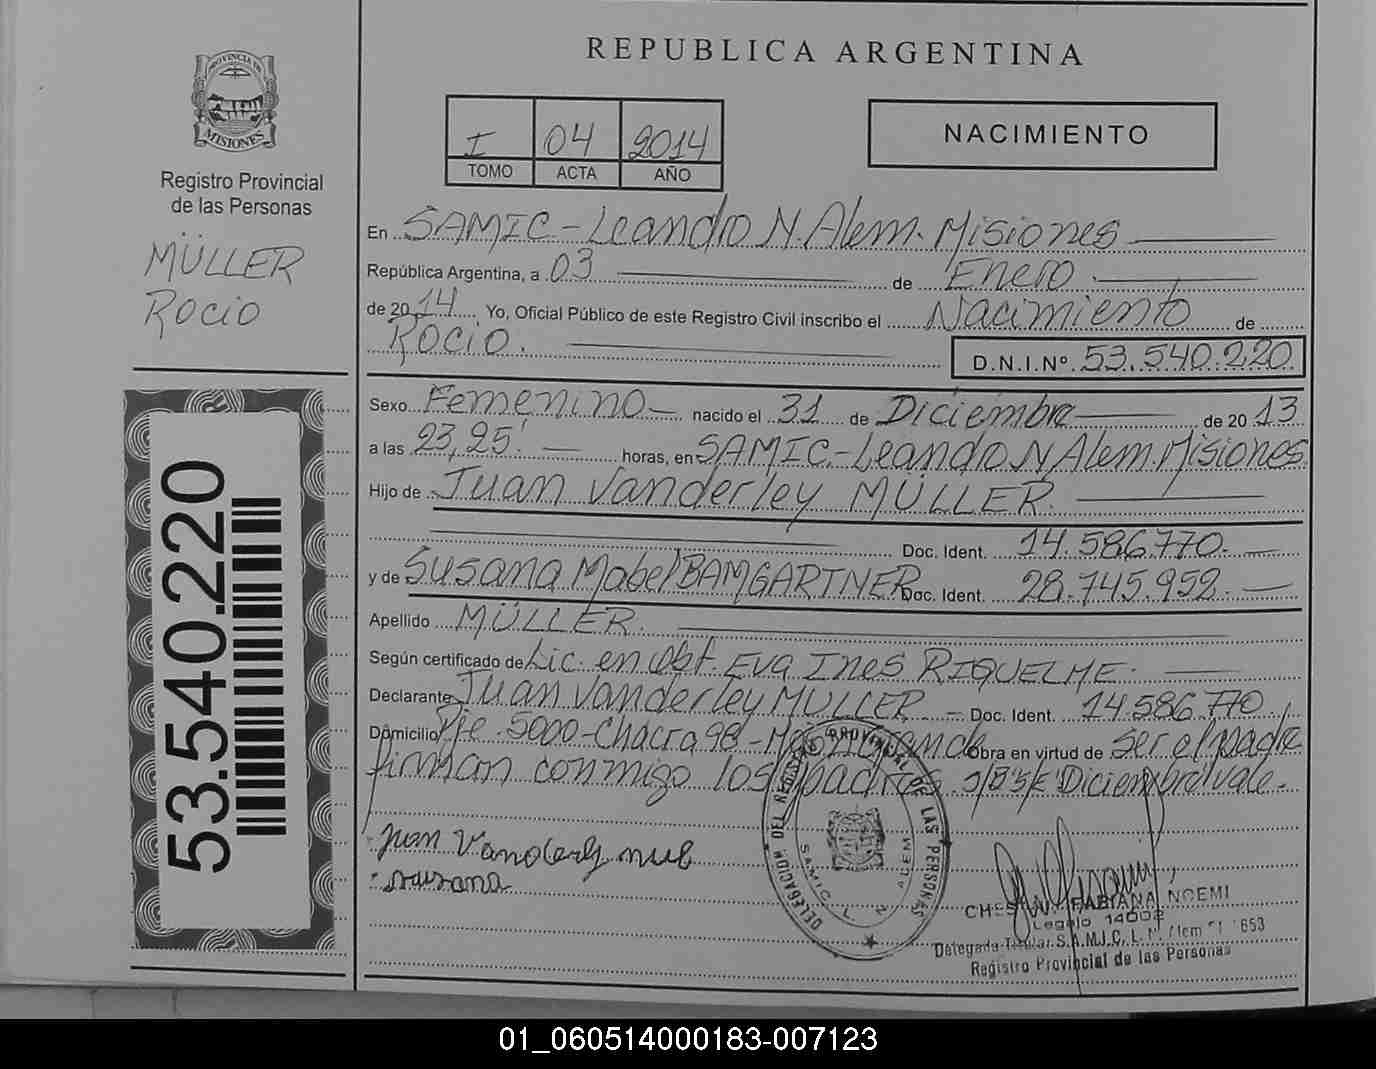 REPUBLICA ARGENTINA
PROVINCIA DE
MISIONES
Registro Provincial
de las Personas
MÜLLER
Rocio
I 04 2014
TOMO ACTA AÑO
NACIMIENTO
En SAMIC - Leandro N. Alem. Misiones
República Argentina, a 03 de Enero
de 2014 Yo, Oficial Público de este Registro Civil inscribo el Nacimiento de
Rocio. D.N.I.Nº 53.540.220
Sexo Femenino nacido el 31 de Diciembre de 2013
a las 23,25' horas, en SAMIC.- Leandro N Alem Misiones
Hijo de Juan Vanderley MÜLLER.
Doc. Ident. 14.586.770.
y de Susana Mabel BAMGARTNER Doc. Ident. 28.745.952.
Apellido MÜLLER.
Según certificado de Lic. en Obt. Eva Ines RIQUELME.
Declarante Juan Vanderley MULLER - Doc. Ident. 14.586.770
Domicilio Pje. 5000 - Chacra 98 - Obra en virtud de ser el padre
firman conmigo los padres Diciembre vale.
Juan Vanderley
susana
DELEGACION DEL REGISTRO PROVINCIAL DE LAS PERSONAS
SAMIC L. N. ALEM
FABIANA NOEMI
Legajo 14002
Delegada Titular S.A.M.I.C. L. N. Alem
Registro Provincial de las Personas
53.540.220
01_060514000183-007123